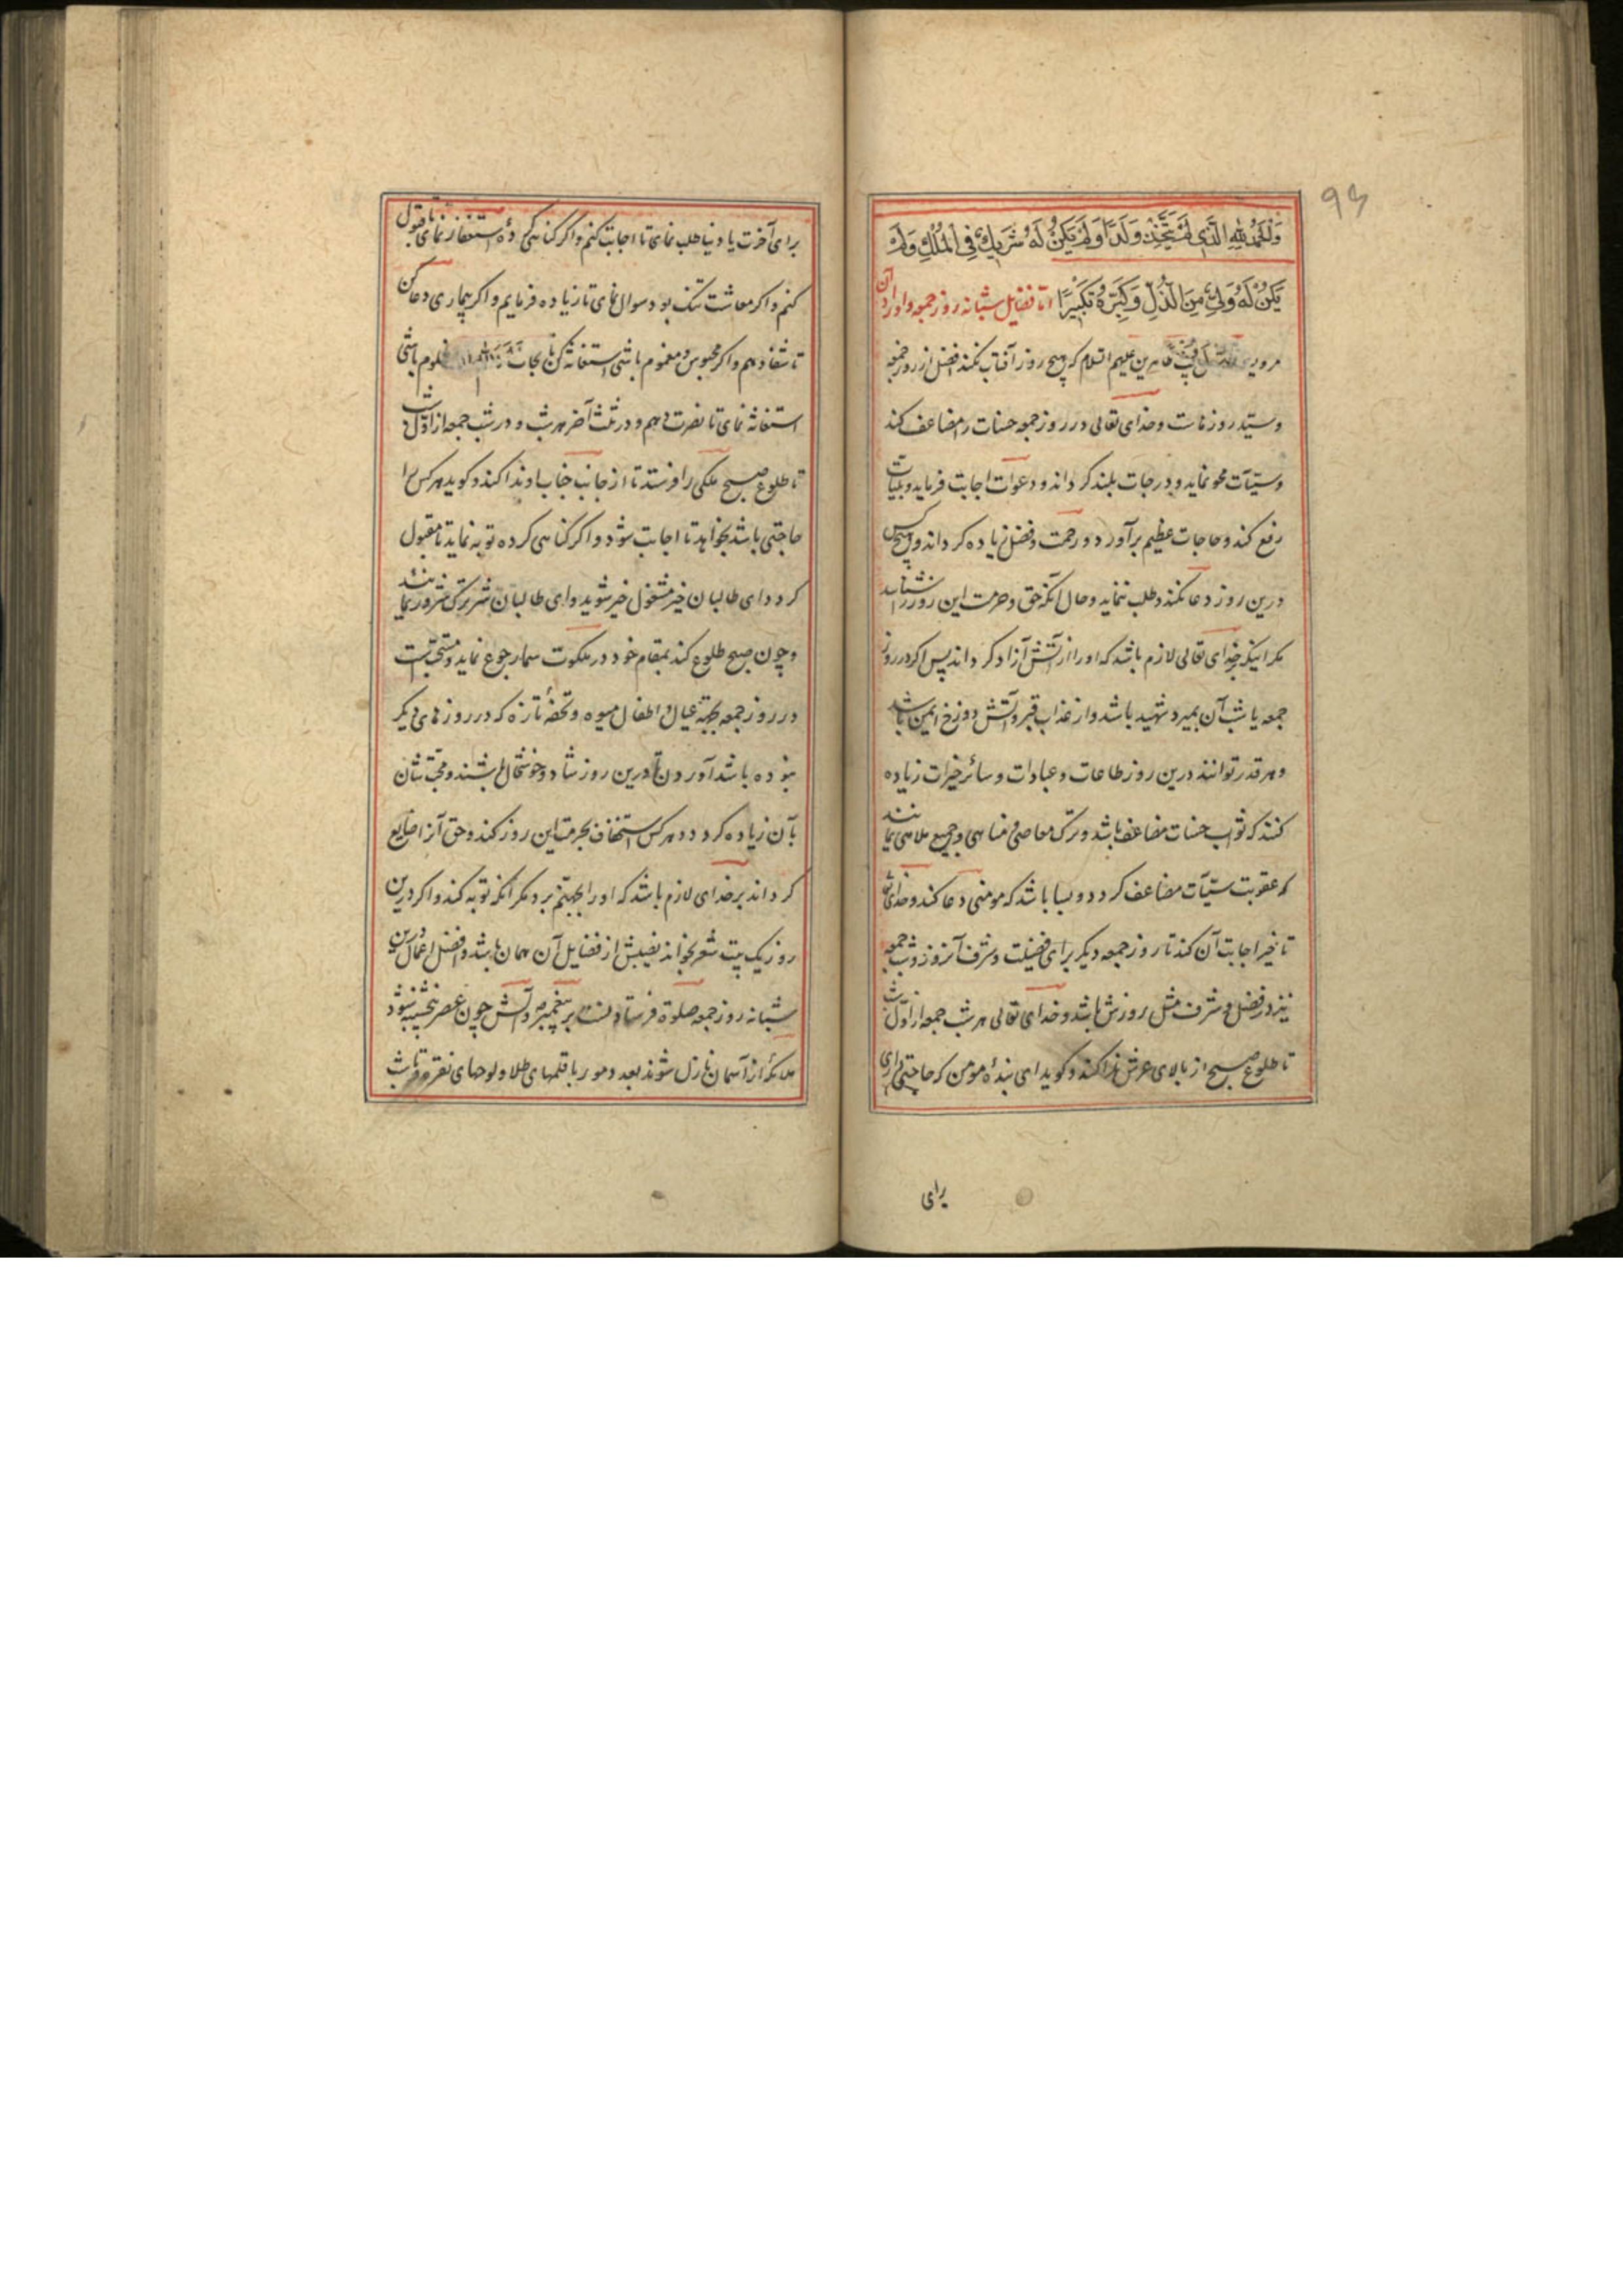 ۹۳
وَالْحَمْدُ لِلَّهِ الَّذِي لَمْ يَتَّخِذْ وَلَدًا وَلَمْ يَكُنْ لَهُ شَرِيكٌ فِي الْمُلْكِ وَلَمْ
يَكُنْ لَهُ وَلِيٌّ مِنَ الذُّلِّ وَكَبِّرْهُ تَكْبِيرًا اما فضایل شبانه روز جمعه و اوراد آن
مرویست علیهم السلام که هیچ روز آفتاب نکند افضل از روز جمعه
و سید روزهاست و خدای تعالی در روز جمعه حسنات را مضاعف کند
و سیّئات محو نماید و درجات بلند کرداند و دعوات اجابت فرماید و بلیّات
رفع کند و حاجات عظیم برآورد و رحمت و فضل زیاده کرداند و هیچکس
درین روز دعا نکند و طلب ننماید و حال آنکه حق و حرمت این روز را شناسد
مکر اینکه بر خدای تعالی لازم باشد که او را از آتش آزاد کرداند پس اکر در روز
جمعه یا شب آن بمیرد شهید باشد و از عذاب قبر و آتش دوزخ ایمن باشد
و هر قدر توانند درین روز طاعات و عبادات و سائر خیرات زیاده
کنند که ثواب حسنات مضاعف باشد و ترک معاصی و مناهی و جمیع ملاهی نمایند
که عقوبت سیّئات مضاعف کردد و بسا باشد که مومنی دعا کند و خدای
تاخیر اجابت آن کند تا روز جمعه دیکر برای فضیلت و شرف آنروز و شب جمعه
نیز در فضل و شرف مثل روزش باشد و خدای تعالی هر شب جمعه از اول شب
تا طلوع صبح از بالای عرش ندا کند و کوید ای بندهٔ مومن که حاجتی داری
برای
برای آخرت یا دنیا طلب نمای تا اجابت کنم و اکر کناهی کردهٔ استغفار نمای تا قبول
کنم و اکر معاشت تنک بود سوال نمای تا زیاده فرمایم و اکر بیماری دعا کن
تا شفا دهم و اکر محبوس و مغموم باشی استغاثه کن تا نجات مظلوم باشی
استغاثه نمای تا نصرت دهم و در ثلث آخر هر شب و در شب جمعه از اول شب
تا طلوع صبح ملکی را فرستد تا از جانب جناب او ندا کند و کوید هر کس را
حاجتی باشد بخواهد تا اجابت شود و اکر کناهی کرده توبه نماید تا مقبول
کردد ای طالبان خیر مشغول خیر شوید و ای طالبان شر ترک شرور نمایند
و چون صبح طلوع کند بمقام خود در ملکوت سما رجوع نماید و مستحبّست
در روز جمعه بجهة عیال و اطفال میوه و تحفهٔ تازه که در روزهای دیکر
نبوده باشد آوردن تا درین روز شاد و خوشحال باشند و محبّتشان
بآن زیاده کردد و هر کس استخفاف بحرمت این روز کند و حق آنرا ضایع
کرداند بر خدای لازم باشد که او را بجهنّم برد مکر آنکه توبه کند و اکر درین
روز یک بیت شعر بخواند نصیبش از فضایل آن همان باشد و افضل اعمال درین
شبانه روز جمعه صلوة فرستادنست بر پیغمبر و آلش چون عصر پنجشنبه شود
ملائکه از آسمان نازل شوند بعدد مور با قلمهای طلا و لوحهای نقره و تا شب